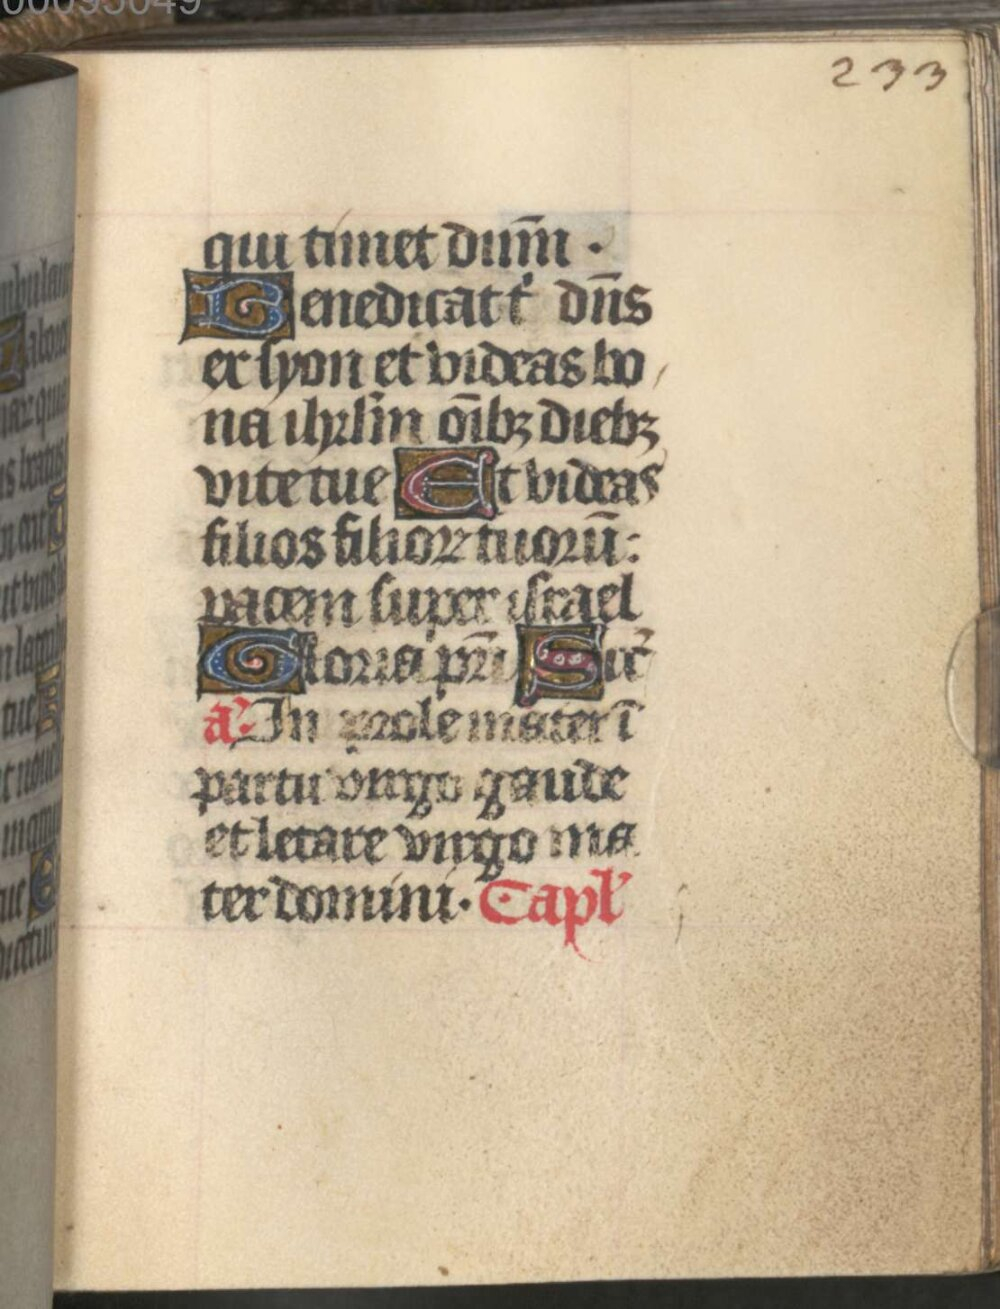 00095049
233
qui timet dn̄m ·
Benedicat t͛ dn̄s
ex syon et videas bo
na ihrl̄m oībꝫ diebꝫ
vite tue Et videas
filios filioꝝ tuoꝝū:
pacem super israel
Gloria pr̄i Sic̄
a͛ In prole mater ī
partu virgo gaude
et letare virgo ma
ter domini· Capl̕